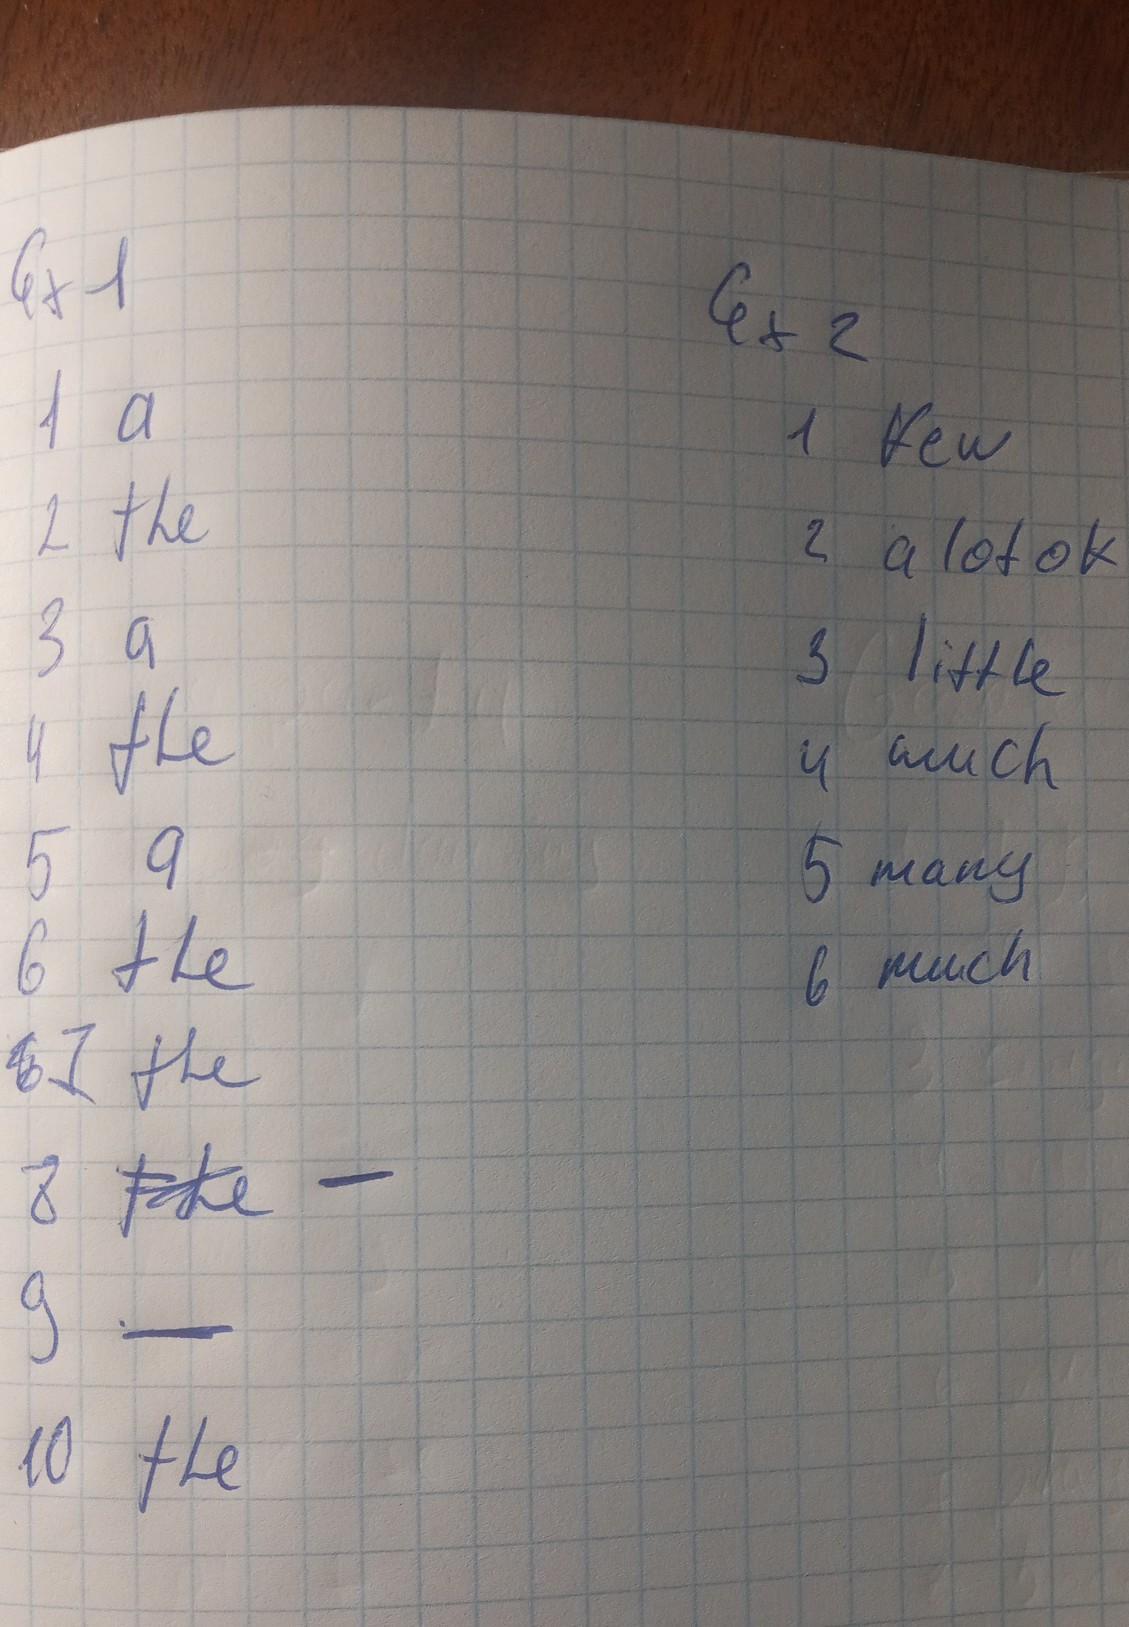 Ex 1
1 a
2 the
3 a
4 the
5 a
6 the
7 the
8 the —
9 —
10 the
Ex 2
1 few
2 a lot of
3 little
4 much
5 many
6 much